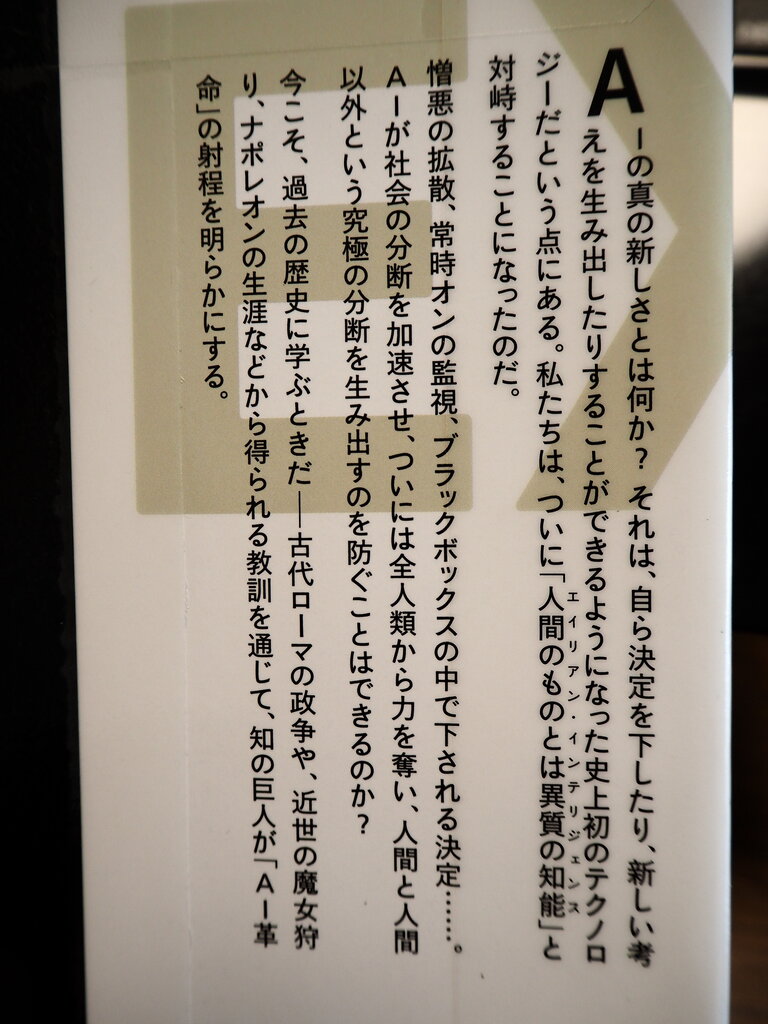 AIの真の新しさとは何か? それは、自ら決定を下したり、新しい考
えを生み出したりすることができるようになった史上初のテクノロ
ジーだという点にある。私たちは、ついに「人間のものとは異質の知能」と
エイリアン・インテリジェンス
対峙することになったのだ。
憎悪の拡散、常時オンの監視、ブラックボックスの中で下される決定……。
AIが社会の分断を加速させ、ついには全人類から力を奪い、人間と人間
以外という究極の分断を生み出すのを防ぐことはできるのか?
今こそ、過去の歴史に学ぶときだ——古代ローマの政争や、近世の魔女狩
り、ナポレオンの生涯などから得られる教訓を通じて、知の巨人が「AI革
命」の射程を明らかにする。